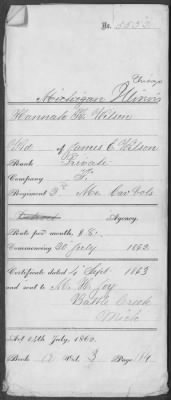 No. 5552
Chicago
Michigan Illinois
Hannah H. Wilson
Wid of James C. Wilson
Rank Private
Company F.
Regiment 3d Mo Cav Vols
Agency.
Rate per month, $8.
Commencing 30 July 1862
Certificate dated 4 Sept. 1863
and sent to M. H. Joy
Battle Creek
Mich
Act 14th July, 1862.
Book A Vol. 3 Page 114